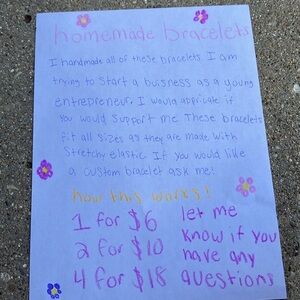 homemade bracelets
I handmade all of these bracelets I am
trying to start a buisness as a young
entrepreneur. I would appricate if
you would support me These bracelets
fit all sizes as they are made with
stretchy elastic If you would like
a custom bracelet ask me!
how this works!
1 for $6
2 for $10
4 for $18
let me
know if you
have any
questions